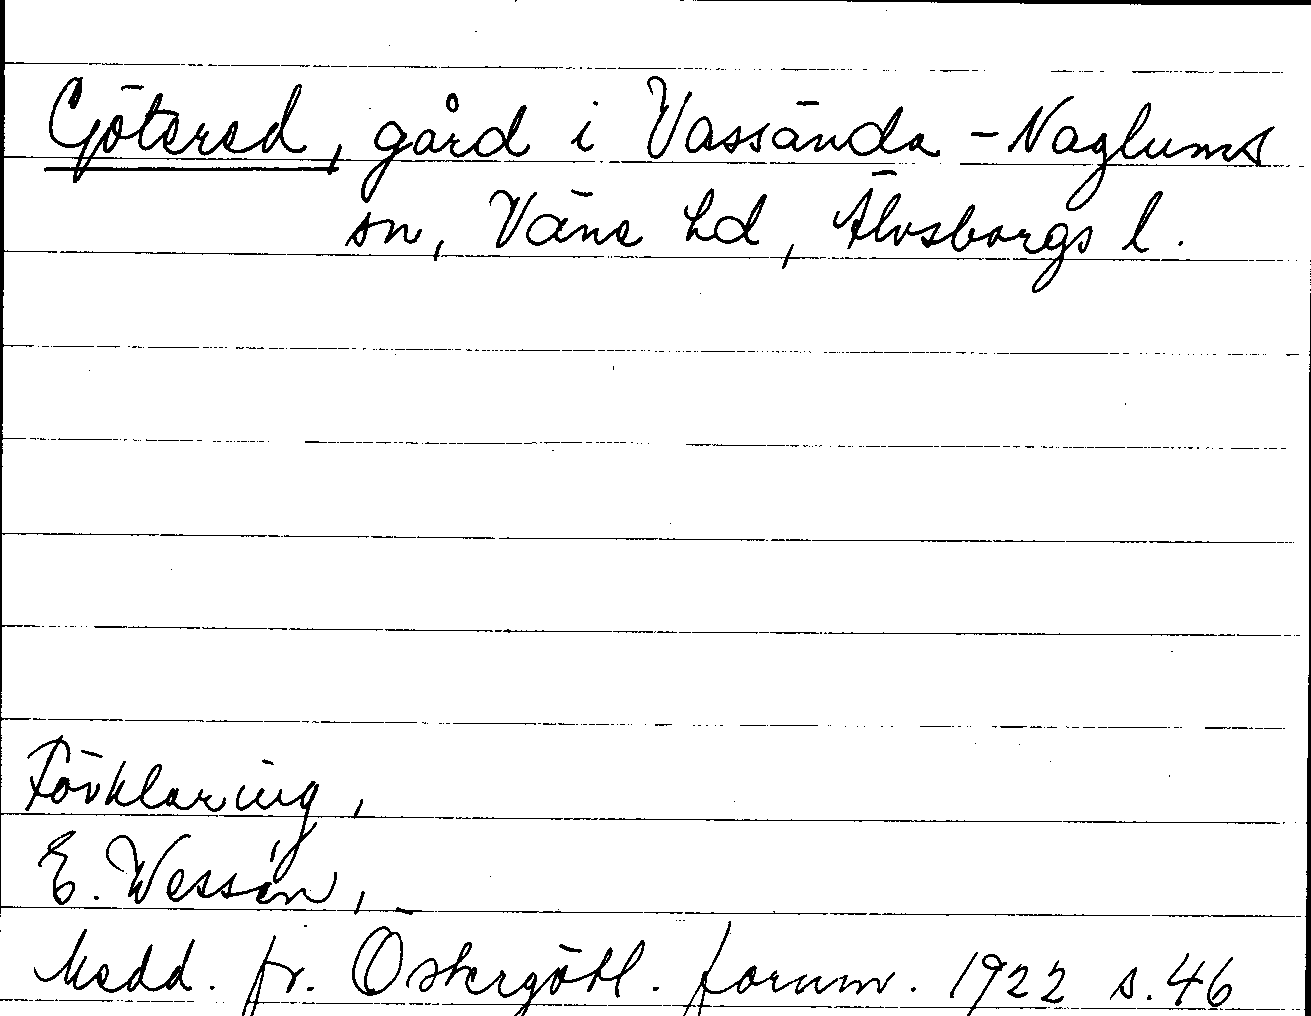 Götered, gård i Vassända-Naglums
sn, Väne hd, Älvsborgs l.
Förklaring,
E. Wessén,
Medd. fr. Östergötl. fornm. 1922 s. 46